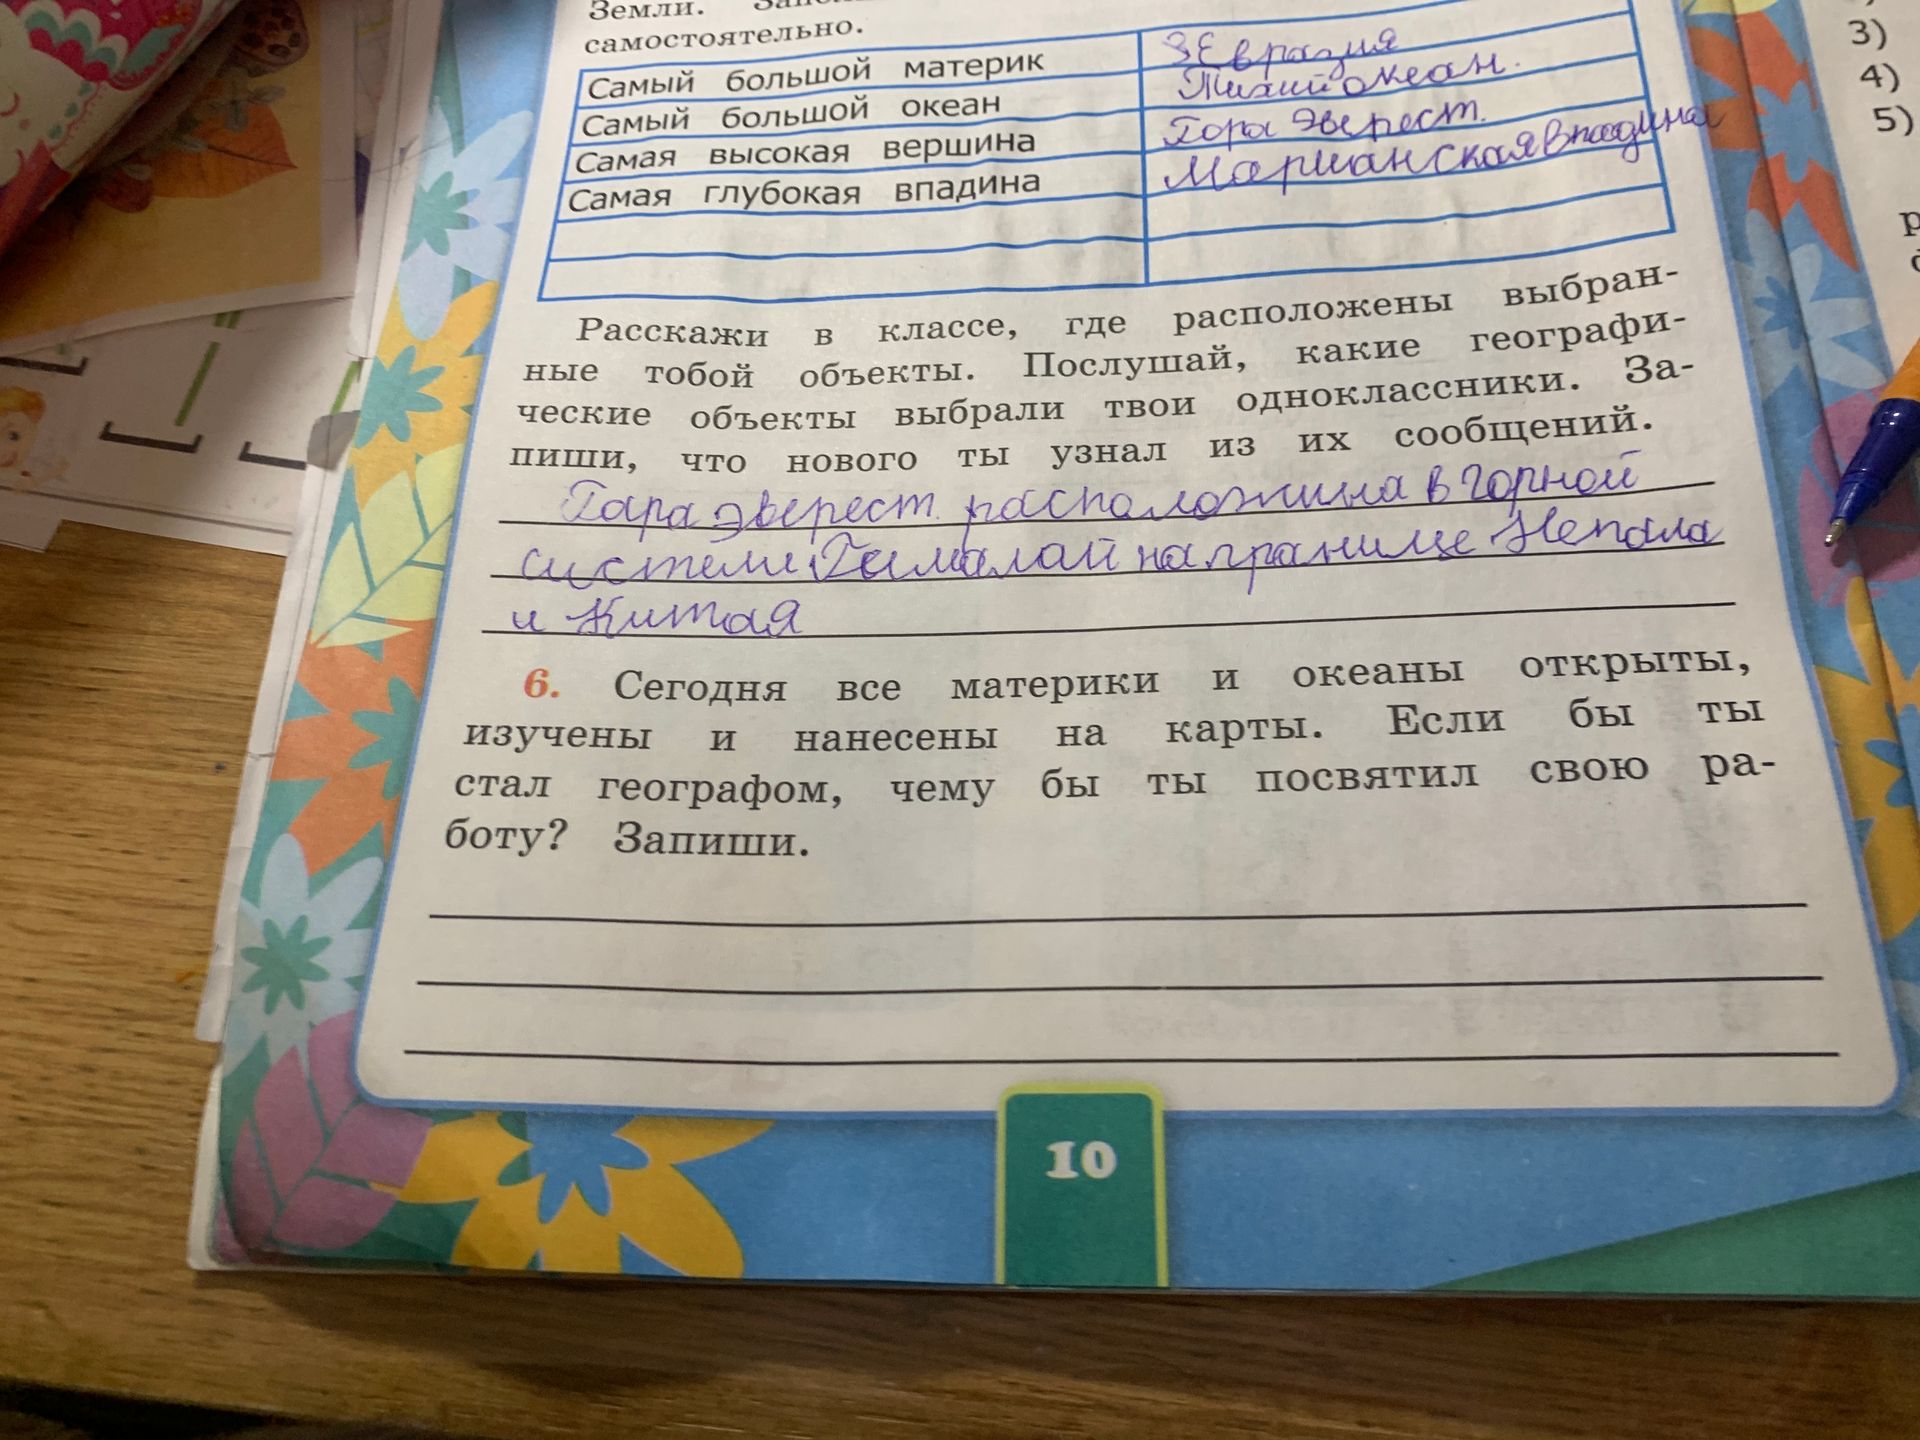 Земли.
самостоятельно.
Самый большой материк Евразия
Самый большой океан Тихий океан.
Самая высокая вершина Гора Эверест.
Самая глубокая впадина Марианская впадина
Расскажи в классе, где расположены выбран-
ные тобой объекты. Послушай, какие географи-
ческие объекты выбрали твои одноклассники. За-
пиши, что нового ты узнал из их сообщений.
Гара Эверест расположина в горной
системи Гималай на границе Непала
и Китая
6. Сегодня все материки и океаны открыты,
изучены и нанесены на карты. Если бы ты
стал географом, чему бы ты посвятил свою ра-
боту? Запиши.
10
3)
4)
5)